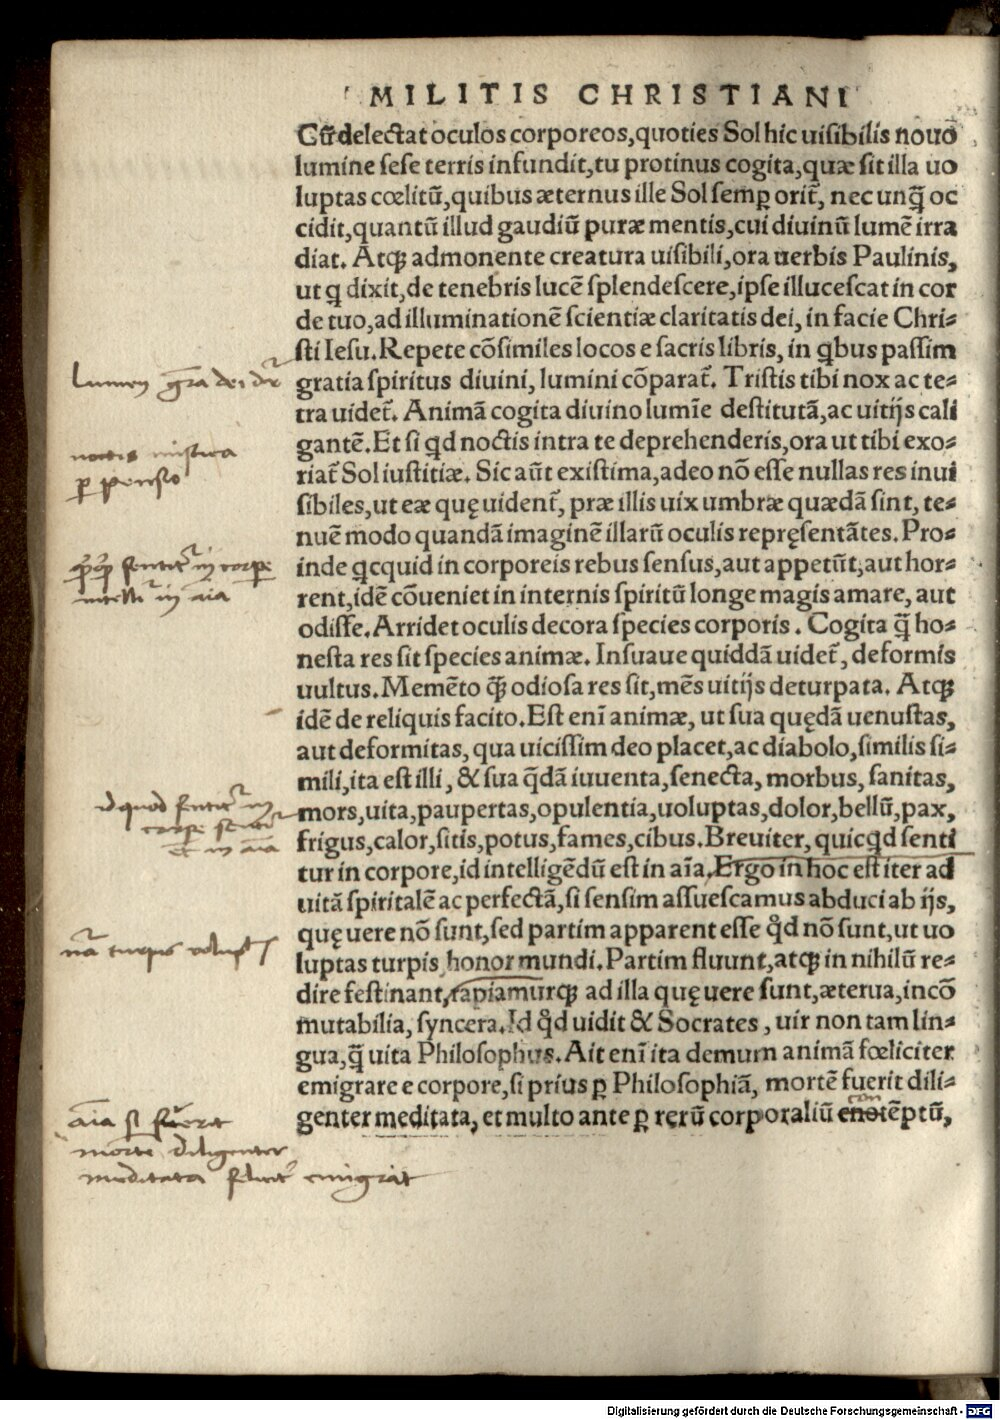 MILITIS CHRISTIANI
Cũ delectat oculos corporeos, quoties Sol hic uisibilis nouo
lumine sese terris infundit, tu protinus cogita, quæ sit illa uo
luptas cœlitũ, quibus æternus ille Sol semꝑ orit̃, nec unq̃ oc
cidit, quantũ illud gaudiũ puræ mentis, cui diuinũ lumẽ irra
diat. Atqꝫ admonente creatura uisibili, ora uerbis Paulinis,
ut q dixit, de tenebris lucẽ splendescere, ipse illucescat in cor
de tuo, ad illuminationẽ scientiæ claritatis dei, in facie Chri⸗
sti Iesu. Repete cõsimiles locos e sacris libris, in qbus passim
Lumen gr̃a dei dr̃
gratia spiritus diuini, lumini cõparat̃. Tristis tibi nox ac te⸗
tra uidet̃. Animã cogita diuino lumĩe destitutã, ac uitijs cali
gantẽ. Et si qd noctis intra te deprehenderis, ora ut tibi exo⸗
noctis mistica
riat̃ Sol iustitiæ. Sic aũt existima, adeo nõ esse nullas res inui
sibiles, ut eæ quę uident̃, præ illis uix umbræ quædã sint, te⸗
nuẽ modo quandã imaginẽ illarũ oculis repręsentãtes. Pro⸗
inde qcquid in corporeis rebus sensus, aut appetũt, aut hor⸗
sentit̃ in corpe
rent, idẽ cõueniet in internis spiritũ longe magis amare, aut
intelli in aĩa
odisse. Arridet oculis decora species corporis. Cogita q̃ ho⸗
nesta res sit species animæ. Insuaue quiddã uidet̃, deformis
uultus. Memẽto q̃ꝫ odiosa res sit, mẽs uitijs deturpata. Atqꝫ
idẽ de reliquis facito. Est enĩ animæ, ut sua quędã uenustas,
aut deformitas, qua uicissim deo placet, ac diabolo, similis si⸗
mili, ita est illi, & sua q̃dã iuuenta, senecta, morbus, sanitas,
id quod sentit̃ in
corpe
et in aĩa
mors, uita, paupertas, opulentia, uoluptas, dolor, bellũ, pax,
frigus, calor, sitis, potus, fames, cibus. Breuiter, quicqd senti
tur in corpore, id intelligẽdũ est in aĩa. Ergo in hoc est iter ad
uitã spiritalẽ ac perfectã, si sensim assuescamus abduci ab ijs,
quę uere nõ sunt, sed partim apparent esse qd̃ nõ sunt, ut uo
turpis uolupt
luptas turpis honor mundi. Partim fluunt, atqꝫ in nihilũ re⸗
dire festinant, rapiamurqꝫ ad illa quę uere sunt, æterua, incõ
mutabilia, syncera. Id qd̃ uidit & Socrates, uir non tam lin⸗
gua, q̃ uita Philosophus. Ait enĩ ita demum animã fœliciter
emigrare e corpore, si prius ꝑ Philosophiã, mortẽ fuerit dili⸗
genter meditata, et multo ante ꝑ rerũ corporaliũ enotẽptũ,
con
aĩa si fuerit
morte diligenter
meditata felicit̃ emigrat
Digitalisierung gefördert durch die Deutsche Forschungsgemeinschaft - DFG